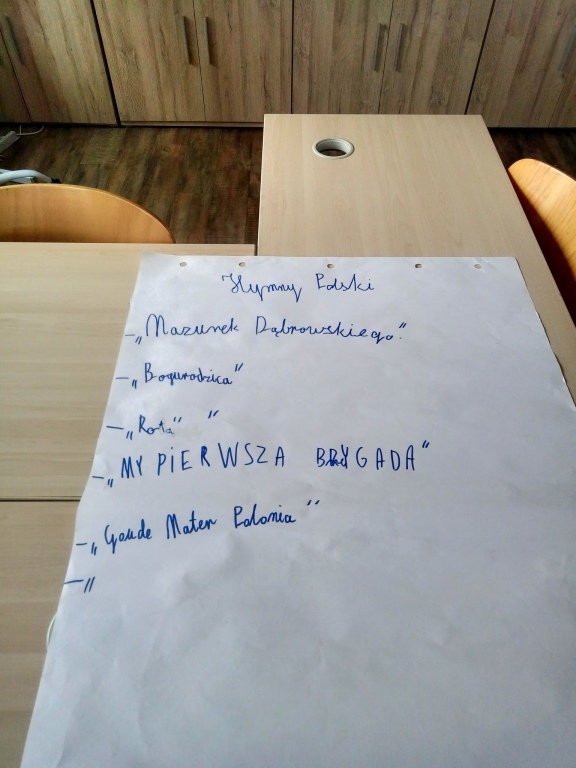 Hymny Polski
- „Mazurek Dąbrowskiego"
- „Bogurodzica"
- „Rota" "
- „MY PIERWSZA BRYGADA"
- „Gaude Mater Polonia"
- „